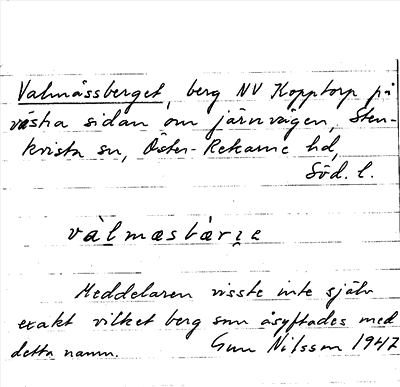 Valmåssberget, berg NV Kopptorp på
västra sidan om järnvägen, Sten-
kvista sn, Öster-Rekarne hd,
Söd. l.
vàlmæsbærıe
Meddelaren visste inte själv
exakt vilket berg som åsyftades med
detta namn. Gun Nilsson 1947